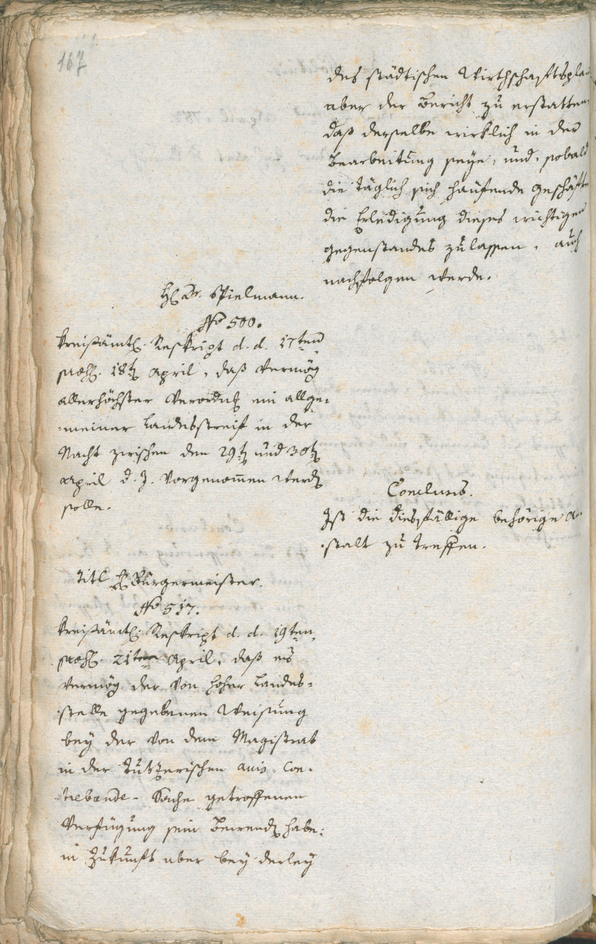 167
des städtischen Wirthschaftsplan
aber der Bericht zu erstatten,
daß derselbe wirklich in der
Bearbeitung seye, und, sobald
die täglich sich häufende Geschäfte
die Erledigung dieses wichtigen
Gegenstandes zulassen, auch
nachfolgen werde.
H. Dr. Spielmann.
No 500.
Kreisämtl. Reskript d. d. 17ten
praes. 18t April, daß vermög
allerhöchster Verordn. ein allge-
meiner Landesstreif in der
Nacht zwischen den 29t und 30t
April d. J. vorgenommen werd
solle.
Conclusis.
Ist die diesfällige behörige An-
stalt zu treffen.
Titl H. Burgermeister.
No 517.
Kreisämtl. Reskript d. d. 19ten
praes. 21ten April, daß es
vermög der von hoher Landes-
stelle gegebenen Weisung
bey der von dem Magistrat
in der avis. Con-
trebande-Sache getroffenen
Verfügung sein Bewend habe:
in Zukunft aber bey derley